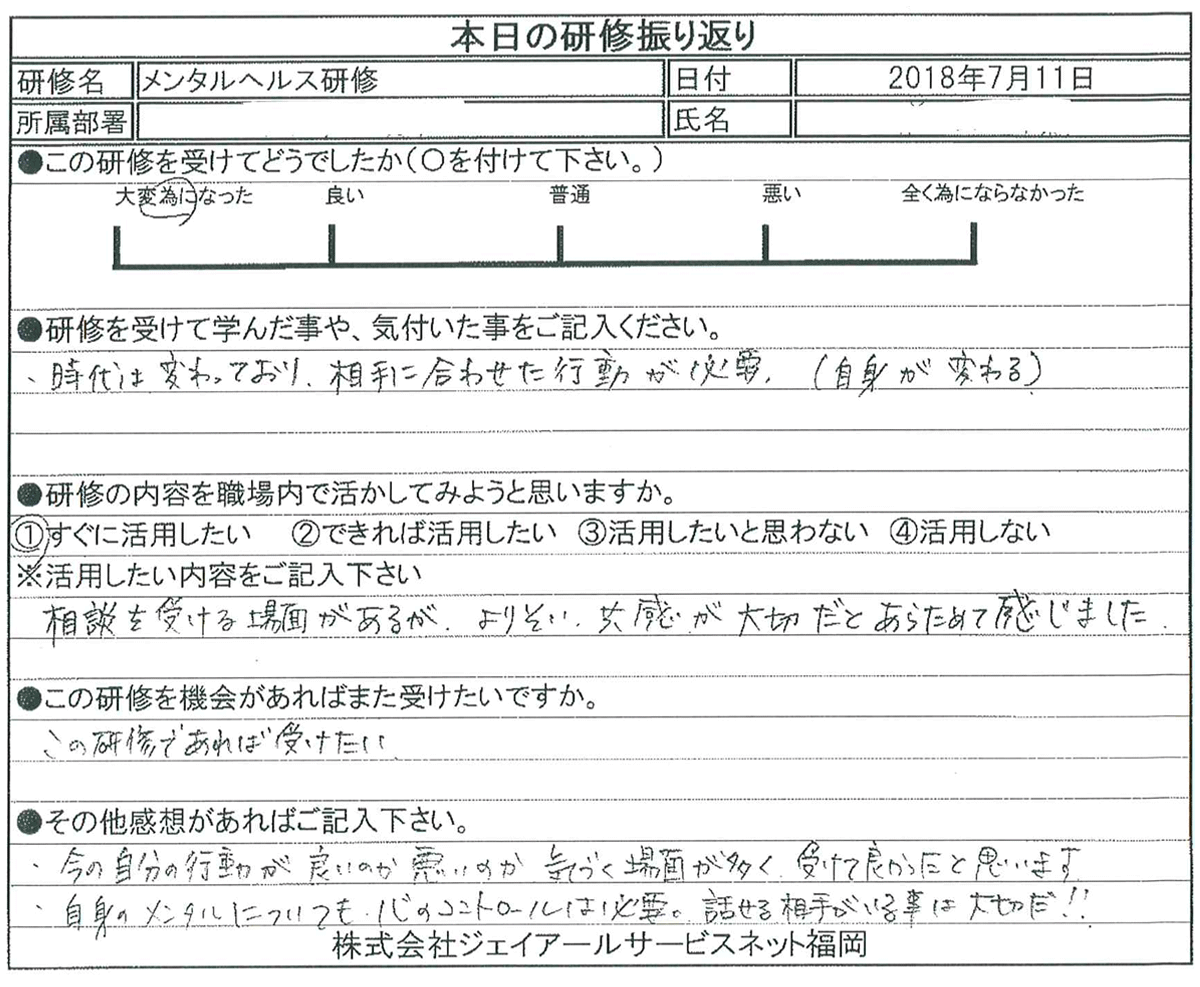 本日の研修振り返り
研修名 メンタルヘルス研修 日付 2018年7月11日
所属部署 氏名
●この研修を受けてどうでしたか(○を付けて下さい。)
大変為になった 良い 普通 悪い 全く為にならなかった
●研修を受けて学んだ事や、気付いた事をご記入ください。
・時代は変わっており、相手に合わせた行動が必要。(自身が変わる)
●研修の内容を職場内で活かしてみようと思いますか。
①すぐに活用したい ②できれば活用したい ③活用したいと思わない ④活用しない
※活用したい内容をご記入下さい
相談を受ける場面があるが、よりそい、共感が大切だとあらためて感じました。
●この研修を機会があればまた受けたいですか。
この研修であれば受けたい
●その他感想があればご記入下さい。
・今の自分の行動が良いのか悪いのか気づく場面が多く、受けて良かったと思います
・自身のメンタルについても、心のコントロールは必要。話せる相手がいる事は大切だ!!
株式会社ジェイアールサービスネット福岡